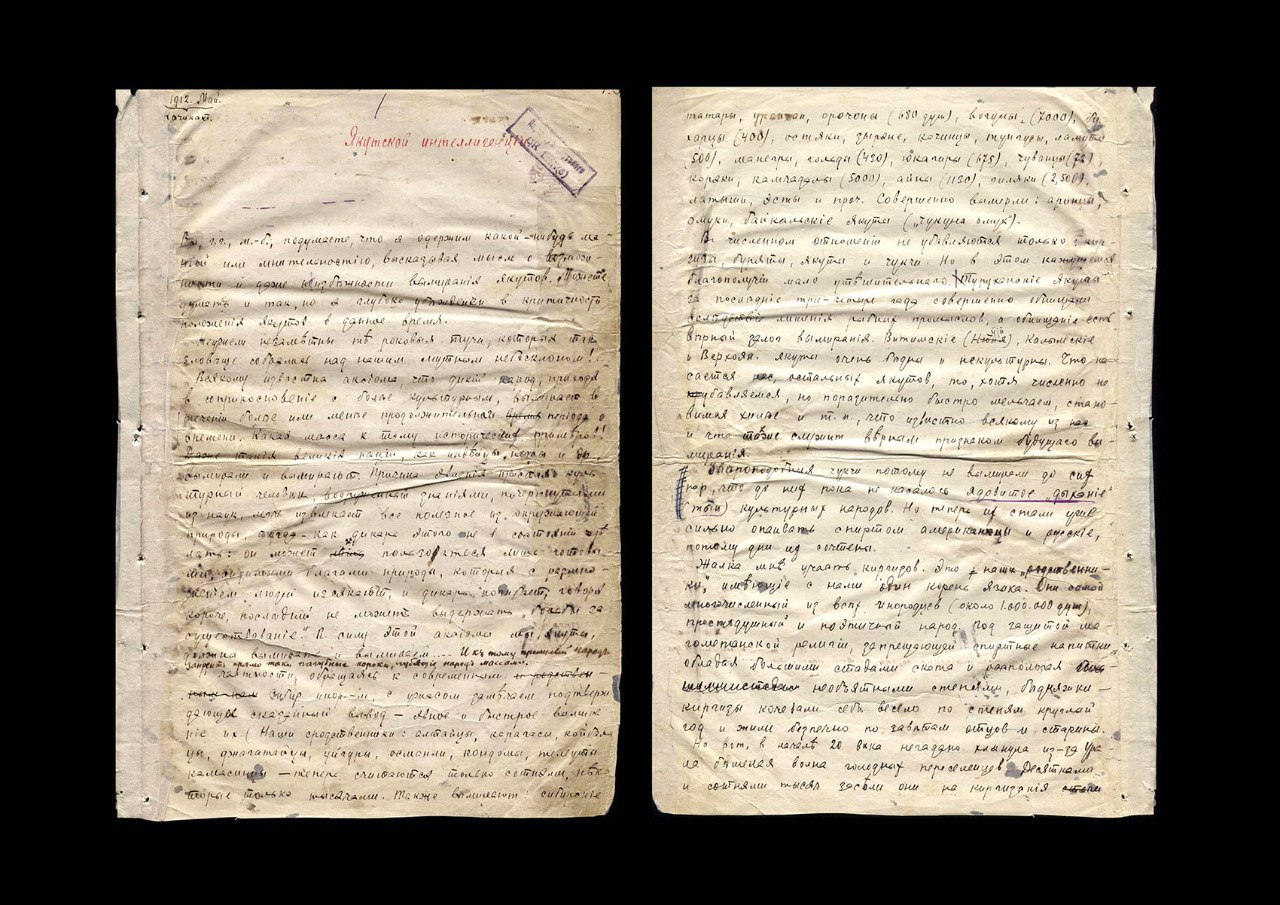 1912. Май.
Якутской интеллигенции
Вы, г.г., м.-б., подумаете, что я одержим какой-нибудь ма-
ніей или мнительностію, высказывая мысль о возмож-
ности и даже неизбѣжности вымиранія якутовъ. Можете
думать и такъ, но я глубоко убѣжденъ в критичности
положенія якутов в данное время.
Неужели незамѣтны тѣ роковыя тучи, которыя так
зловеще собрались над нашим мутным небосклоном!
Всякому извѣстна аксіома что дикій народ, приходя
в соприкосновеніе с более культурным, вымирает в
теченіи более или менѣе продолжительнаго время періода
времени. Какая масса к тому исторических примѣров!
Даже такія великія націи, как индѣйцы, негры и др.
вымирали и вымирают. Причина явленія простая: куль-
турный человѣк, вооруженный знаніями, почерпнутыми
из наук, извлекает все полезное из окружающей
природы, тогда-как дикарь этого не в состояніи сдѣ-
лать: он может пользоваться лишь готовы-
ми, видимыми благами природы, которыя с размно-
женіем людей изсякают, и дикарь погибает, говоря
короче, последній не можетъ выдержать „борьбы за
существованіе“. В силу этой аксіомы мы, якуты,
должны вымирать и вымираем.... И къ тому народъ
заѣдаютъ прямо таки пагубные пороки, губящіе народъ массами.
В частности, обращаясь к современным
сибир. инор-м, с ужасом замѣчаем подтверж-
дающее сказанный вывод – явное и быстрое вымира-
ніе их (Наши сродственники: алтайцы, карагасы, койбаль-
цы, джагатайцы, уйгуры, османли, кондома, телеуты
камасинцы – теперь считаются только сотнями, нѣко-
торые только тысячами. Также вымирают: сибирскіе
татары, урянхаи, орочоны (680 душ), вогулы, (7000), бу-
харцы (400), остяки, зыряне, качинцы, тунгусы, ламуты
500), манегры, гольды (430), юкагиры (675), чуванцы (72),
коряки, камчадалы (5000), айны (1130), гиляки (2,500),
латыши, эсты и проч. Совершенно вымерли: аринцы,
омуки, байкальскіе якуты („чукуна омук“).
В численном отношеніи не убавляются только: кир-
гизы, буряты, якуты и чукчи. Но в этом кажущемся
благополучіи мало утѣшительнаго. Туруханскіе якуты
за последніе три-четыре года совершенно обнищали
вслѣдствіе лишенія рыбных промыслов, а обнищаніе есть
вѣрный залог вымиранія. Вилюйскіе (Нюя), Колымскіе
и Верхоян. якуты очень бѣдны и некультурны. Что ка-
сается нас, остальных якутов, то, хотя численно не
убавляемся, но поразительно быстро мельчаем, стано-
вимся хилые и т. п., что извѣстно всякому из нас
и что также служит вѣрным признаком будущаго вы-
миранія.
Звѣроподобные чукчи потому не вымирали до сих
пор, что до них пока не касалось „ядовитое дыханіе“
культурных народов. Но теперь их стали уже
сильно опаивать спиртом американцы и русскіе,
потому дни их сочтены.
Жалка мнѣ участь киргизов. Это наши „родственни-
ки“, имѣющіе с нами один корень языка. Они самой
многочисленный из всѣх инородцев (около 1.000.000 душ),
простодушный и поэтичный народ. Под защитой ма-
гометанской религіи, запрещающей спиртные напитки,
обладая большими стадами скота и располагая
необъятными степями, бѣдняжки-
киргизы кочевали себѣ весело по степям круглый
год и жили безпечно по завѣтам отцов и старины.
Но вот, в началѣ 20 вѣка негаданно хлынула из-за Ура-
ла бѣшеная волна голодных переселенцев. Десятками
и сотнями тысяч засѣли они на киргизскія степи